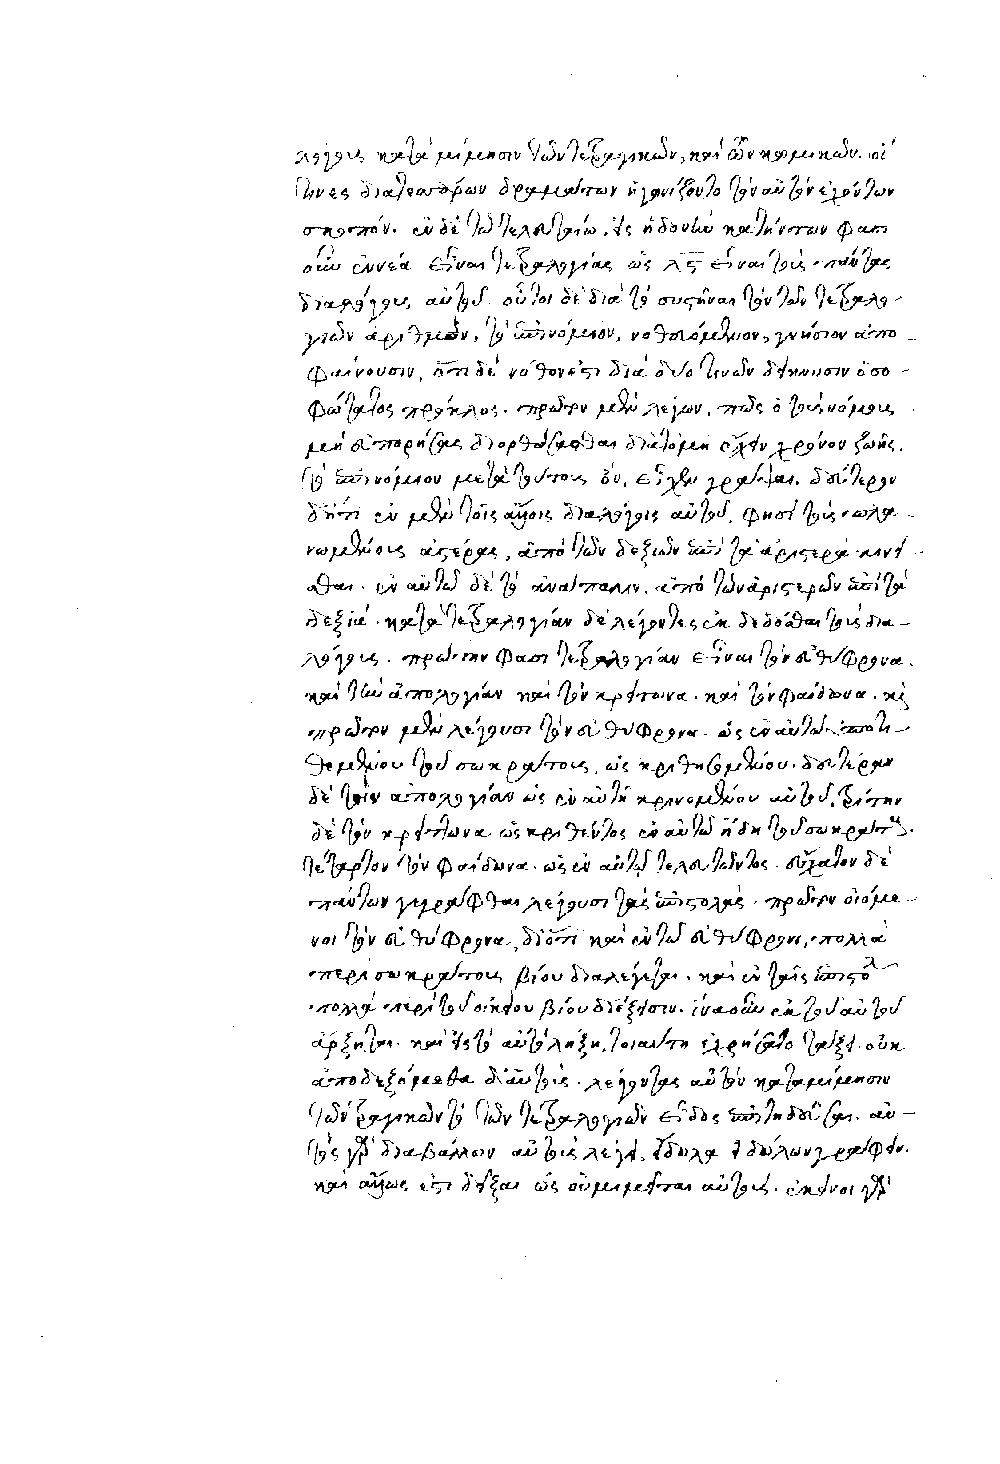 λόγους κατὰ μίμησιν τῶν τετραγικῶν, καὶ τῶν κωμικῶν. οἵ
τινες διὰ τεσσάρων δραμάτων ἠγωνίζοντο τὸν αὐτὸν ἐχόντων
σκοπόν. ἐν δὲ τῷ τελευταίῳ, εἰς ἡδονὴν κατήντων φασὶ
οὖν ἐννέα εἶναι τετραλογίας ὡς λϛ εἶναι τοὺς πάντας
διαλόγους αὐτοῦ. οὗτοι δὲ διὰ τὸ συστῆναι τὸν τῶν τετραλο-
γιῶν ἀριθμὸν, τὸ ἐπινόμιον, νοθευόμενον, γνήσιον ἀπο-
φαίνουσιν, ὅτι δὲ νόθον ἐστι διὰ δύο τινῶν δείκνυσιν ὁ σο-
φώτατος πρόκλος. πρῶτον μὲν λέγων, πῶς ὁ τοὺς νόμους
μὴ εὐπορήσας διορθώσασθαι διὰ τὸ μὴ ἔχειν χρόνον ζωῆς.
τὸ ἐπινόμιον μετὰ τούτους ὂν, εἶχεν γράψαι. δεύτερον
δὲ ὅτι ἐν μὲν τοῖς ἄλλοις διαλόγοις αὐτοῦ, φησὶ τοὺς πλα-
νωμένους ἀστέρας, ἀπὸ τῶν δεξιῶν ἐπὶ τὰ ἀριστερὰ κινεῖ-
σθαι. ἐν αὐτῷ δὲ τὸ ἀνάπαλιν, ἀπὸ τῶν ἀριστερῶν ἐπὶ τὰ
δεξιά. κατὰ τετραλογίαν δὲ λέγοντες ἐκδεδόσθαι τοὺς δια-
λόγους. πρώτην φασὶ τετραλογίαν εἶναι τὸν εὐθύφρονα.
καὶ τὴν ἀπολογίαν καὶ τὸν κρίτωνα. καὶ τὸν φαίδωνα. καὶ
πρῶτον μὲν λέγουσι τὸν εὐθύφρονα. ὡς ἐν αὐτῷ ὑποτι-
θεμένου τοῦ σωκράτους, ὡς κριθησομένου. δευτέραν
δὲ τὴν ἀπολογίαν ὡς ἐν αὐτῇ κρινομένου αὐτοῦ, τρίτην
δὲ τὸν κρίτωνα ὡς κριθέντος ἐν αὐτῷ ἤδη τοῦ σωκράτους.
τέταρτον τὸν φαίδωνα. ὡς ἐν αὐτῷ τελευτῶντος. ἔσχατον δὲ
πάντων γεγράφθαι λέγουσι τὰς ἐπιστολάς. πρῶτον οἰόμε-
νοι τὸν εὐθύφρονα, διότι καὶ ἐν τῷ εὐθύφρονι, πολλὰ
περὶ σωκράτους βίου διαλέγεται. καὶ ἐν ταῖς ἐπιστολ
πολλὰ περὶ τοῦ οἰκείου βίου διέξεισιν. ἵνα οὖν ἐκ τοῦ αὐτοῦ
ἄρξηται. καὶ εἰς τὸ αὐτὸ λήξῃ, τοιαύτῃ ἐχρήσατο τάξει. οὐκ
ἀποδεξόμεθα δὲ αὐτοὺς. λέγοντας αὐτὸν κατὰ μίμησιν
τῶν τραγικῶν τὸ τῶν τετραλογιῶν εἶδος ἐπιτηδεῦσαι. αὐ-
τὸς γὰρ διαβάλλων αὐτοὺς λέγει, εἴδωλα εἰδώλων γράφειν.
καὶ ἄλλως ἔστι δεῖξαι ὡς οὐ μιμεῖται αὐτούς. ἐκεῖνοι γὰρ